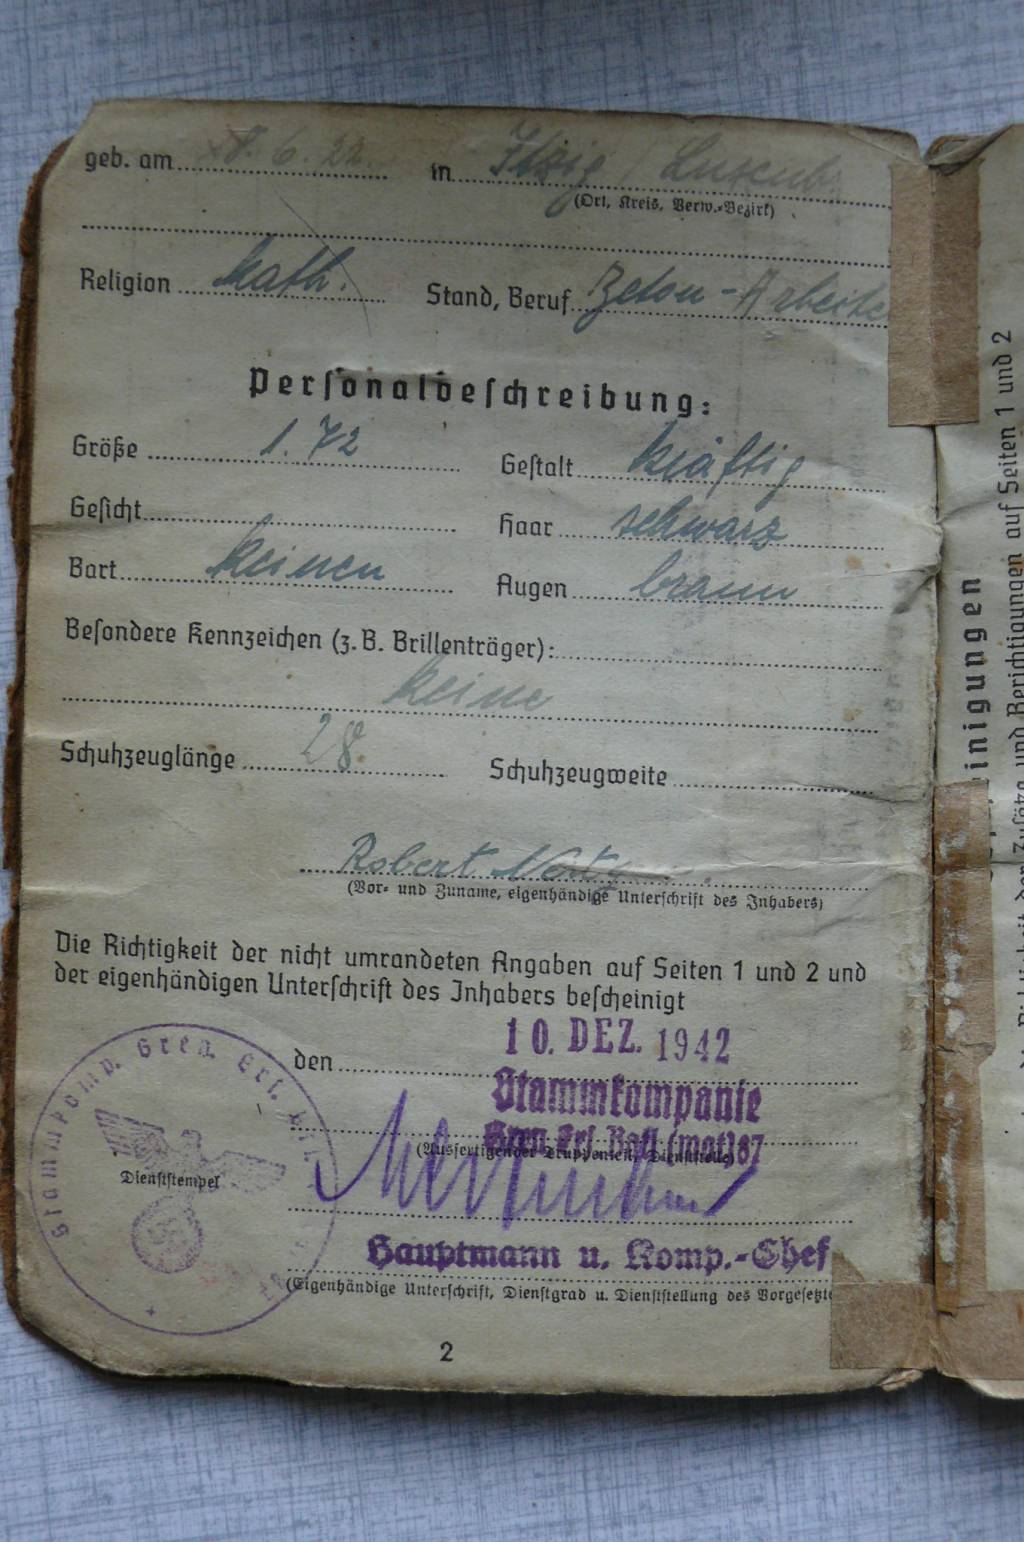 geb. am 8.6.22. in Itzig / Luxemb.
(Ort, Kreis, Verw.-Bezirk)
Religion kath. Stand, Beruf Beton-Arbeite
Personalbeschreibung:
Größe 1.72 Gestalt kräftig
Gesicht Haar schwarz
Bart keinen Augen braun
Besondere Kennzeichen (z. B. Brillenträger):
keine
Schuhzeuglänge 28 Schuhzeugweite
Robert
(Vor- und Zuname, eigenhändige Unterschrift des Inhabers)
Die Richtigkeit der nicht umrandeten Angaben auf Seiten 1 und 2 und
der eigenhändigen Unterschrift des Inhabers bescheinigt
den 10. DEZ. 1942
Stammkompanie
Gren. Ers. Batl. (mot) 87
(Ausfertigender Truppenteil, Dienststelle)
Stammkomp. Gren. Ers.
Dienststempel
Hauptmann u. Komp.-Chef
(Eigenhändige Unterschrift, Dienstgrad u. Dienststellung des Vorgesetzte
2
inigungen
der Zusätze und Berichtigungen auf Seiten 1 und 2